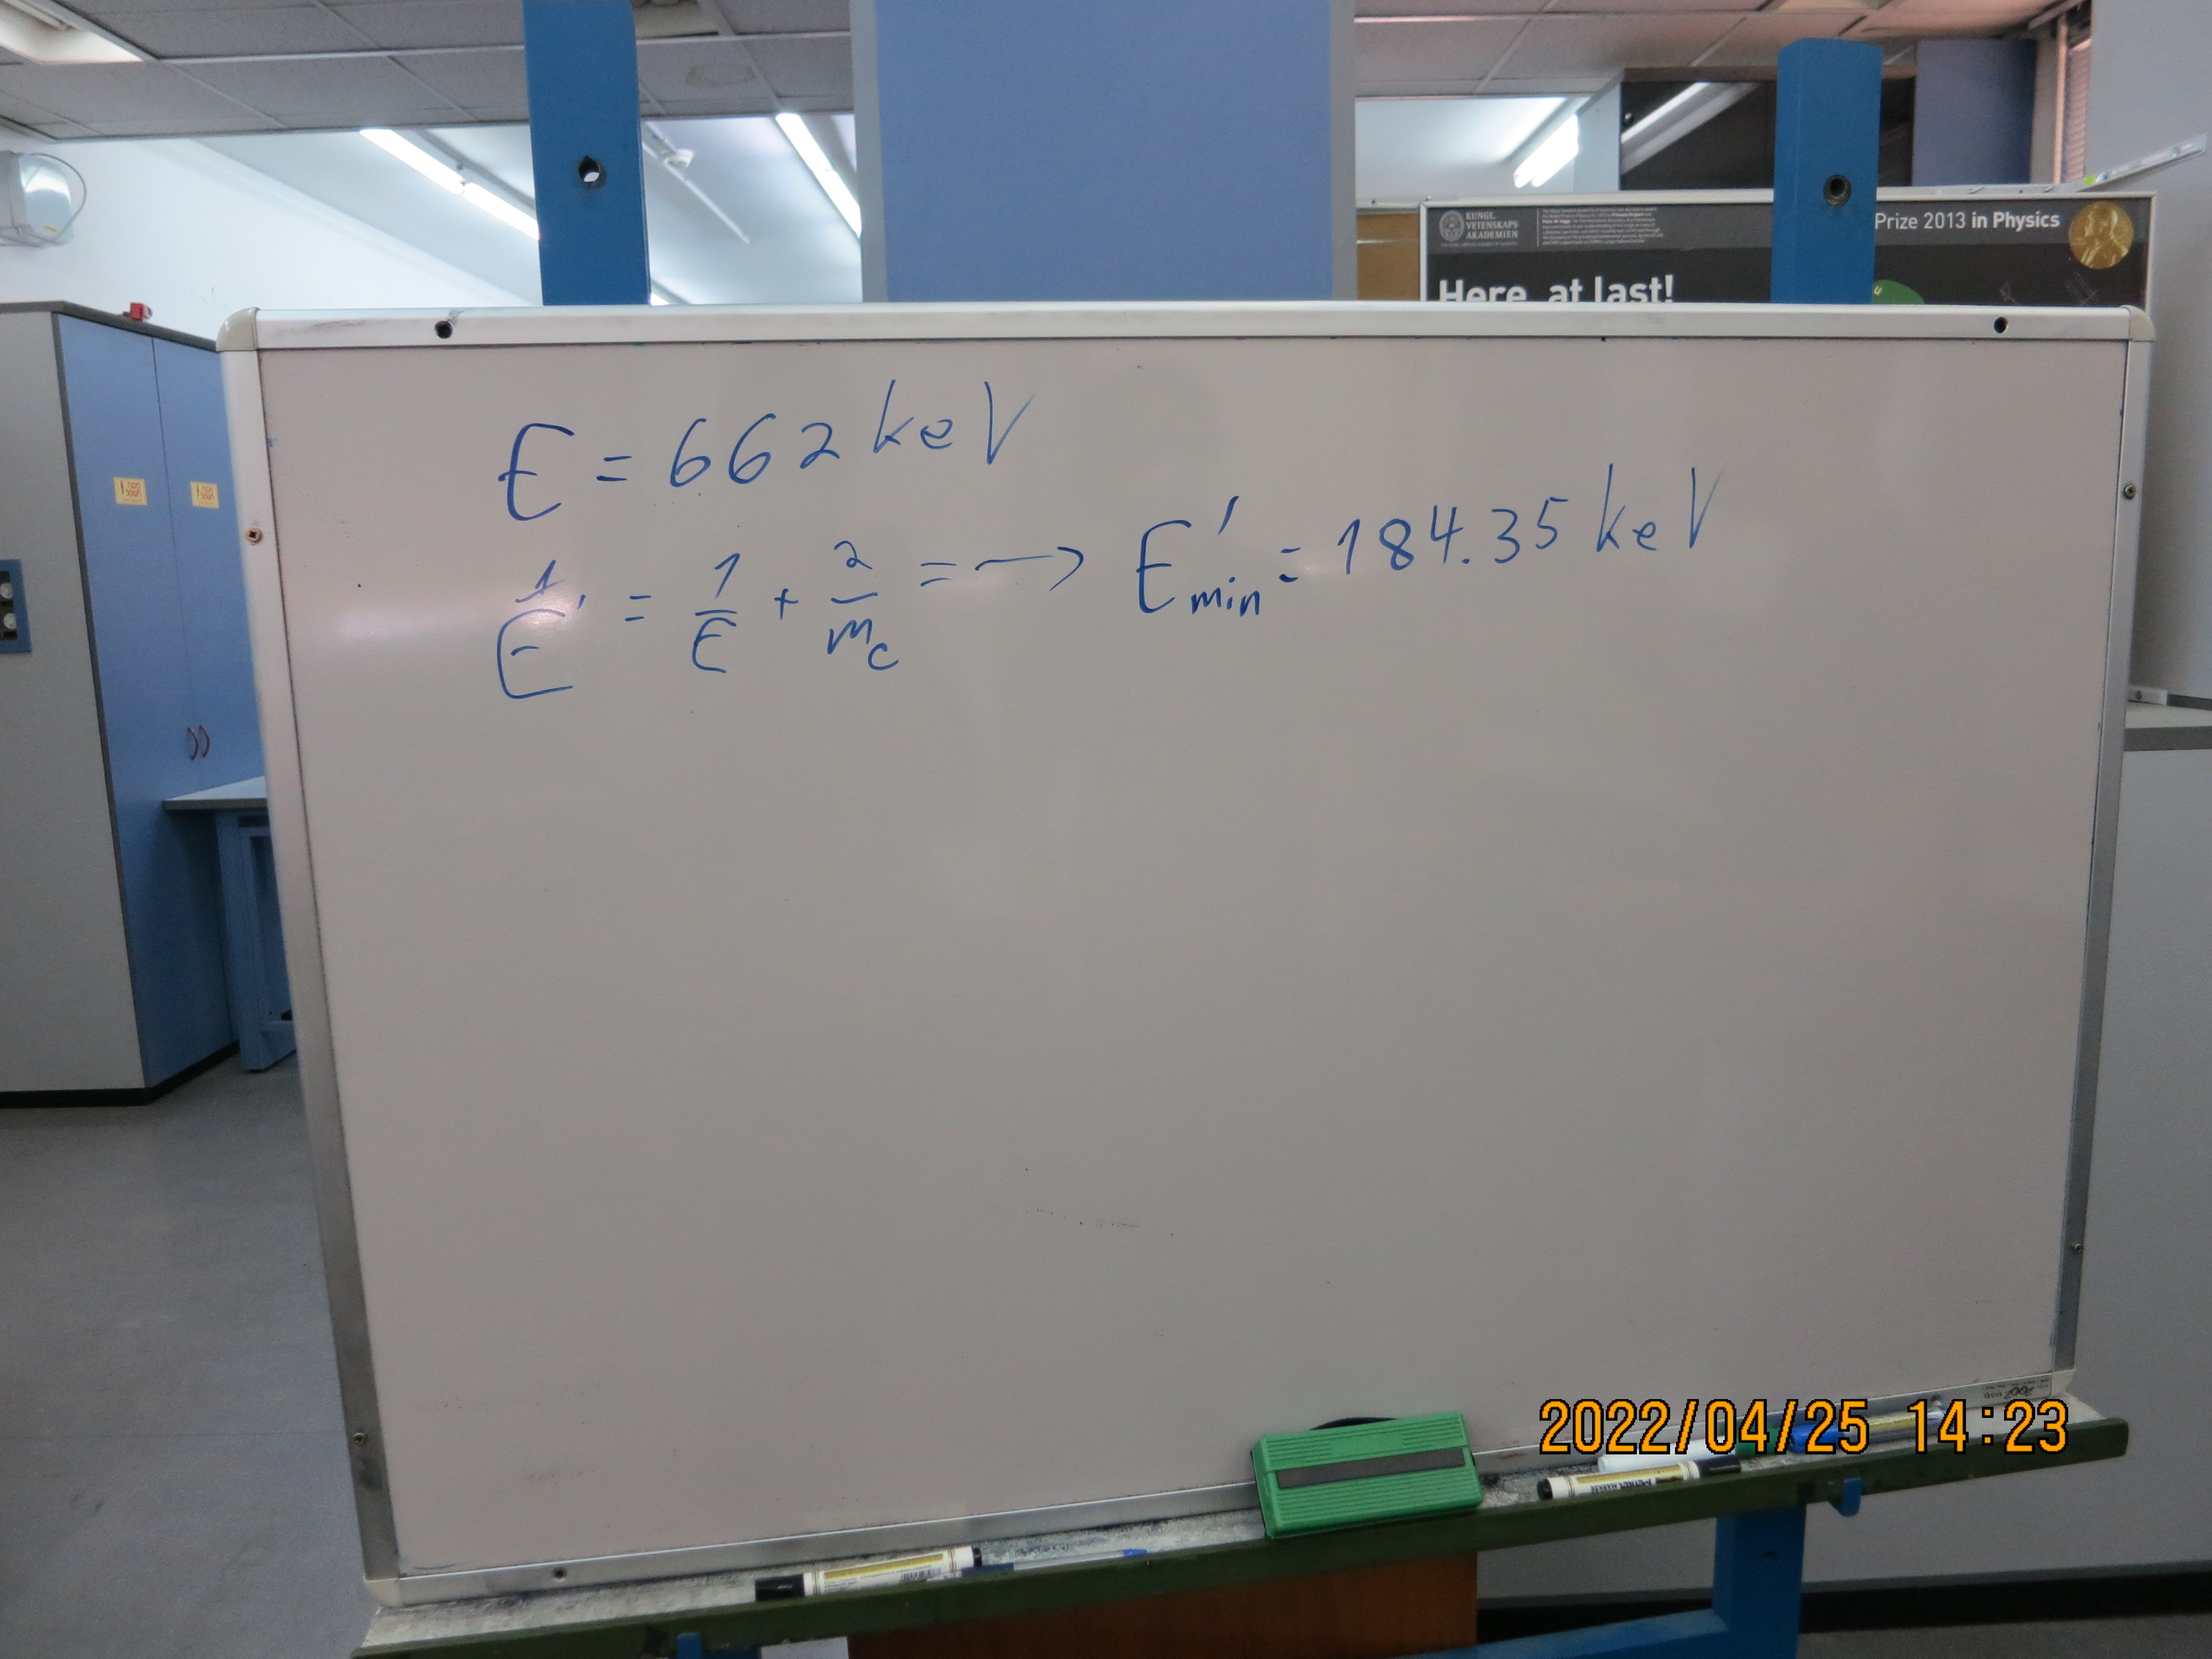 KUNGL.
VETENSKAPS
AKADEMIEN
Prize 2013 in Physics
Here, at last!
E = 662 keV
1/E' = 1/E + 2/m_c = → E'min = 184.35 keV
2022/04/25 14:23